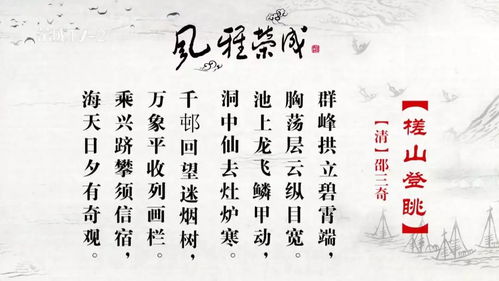 風雅榮成
【槎山登眺】
【清】邵三奇
群峰拱立碧霄端，
胸荡层云纵目宽。
池上龙飞鳞甲动，
洞中仙去灶炉寒。
千邨回望迷烟树，
万象平收列画栏。
乘兴跻攀须信宿，
海天日夕有奇观。